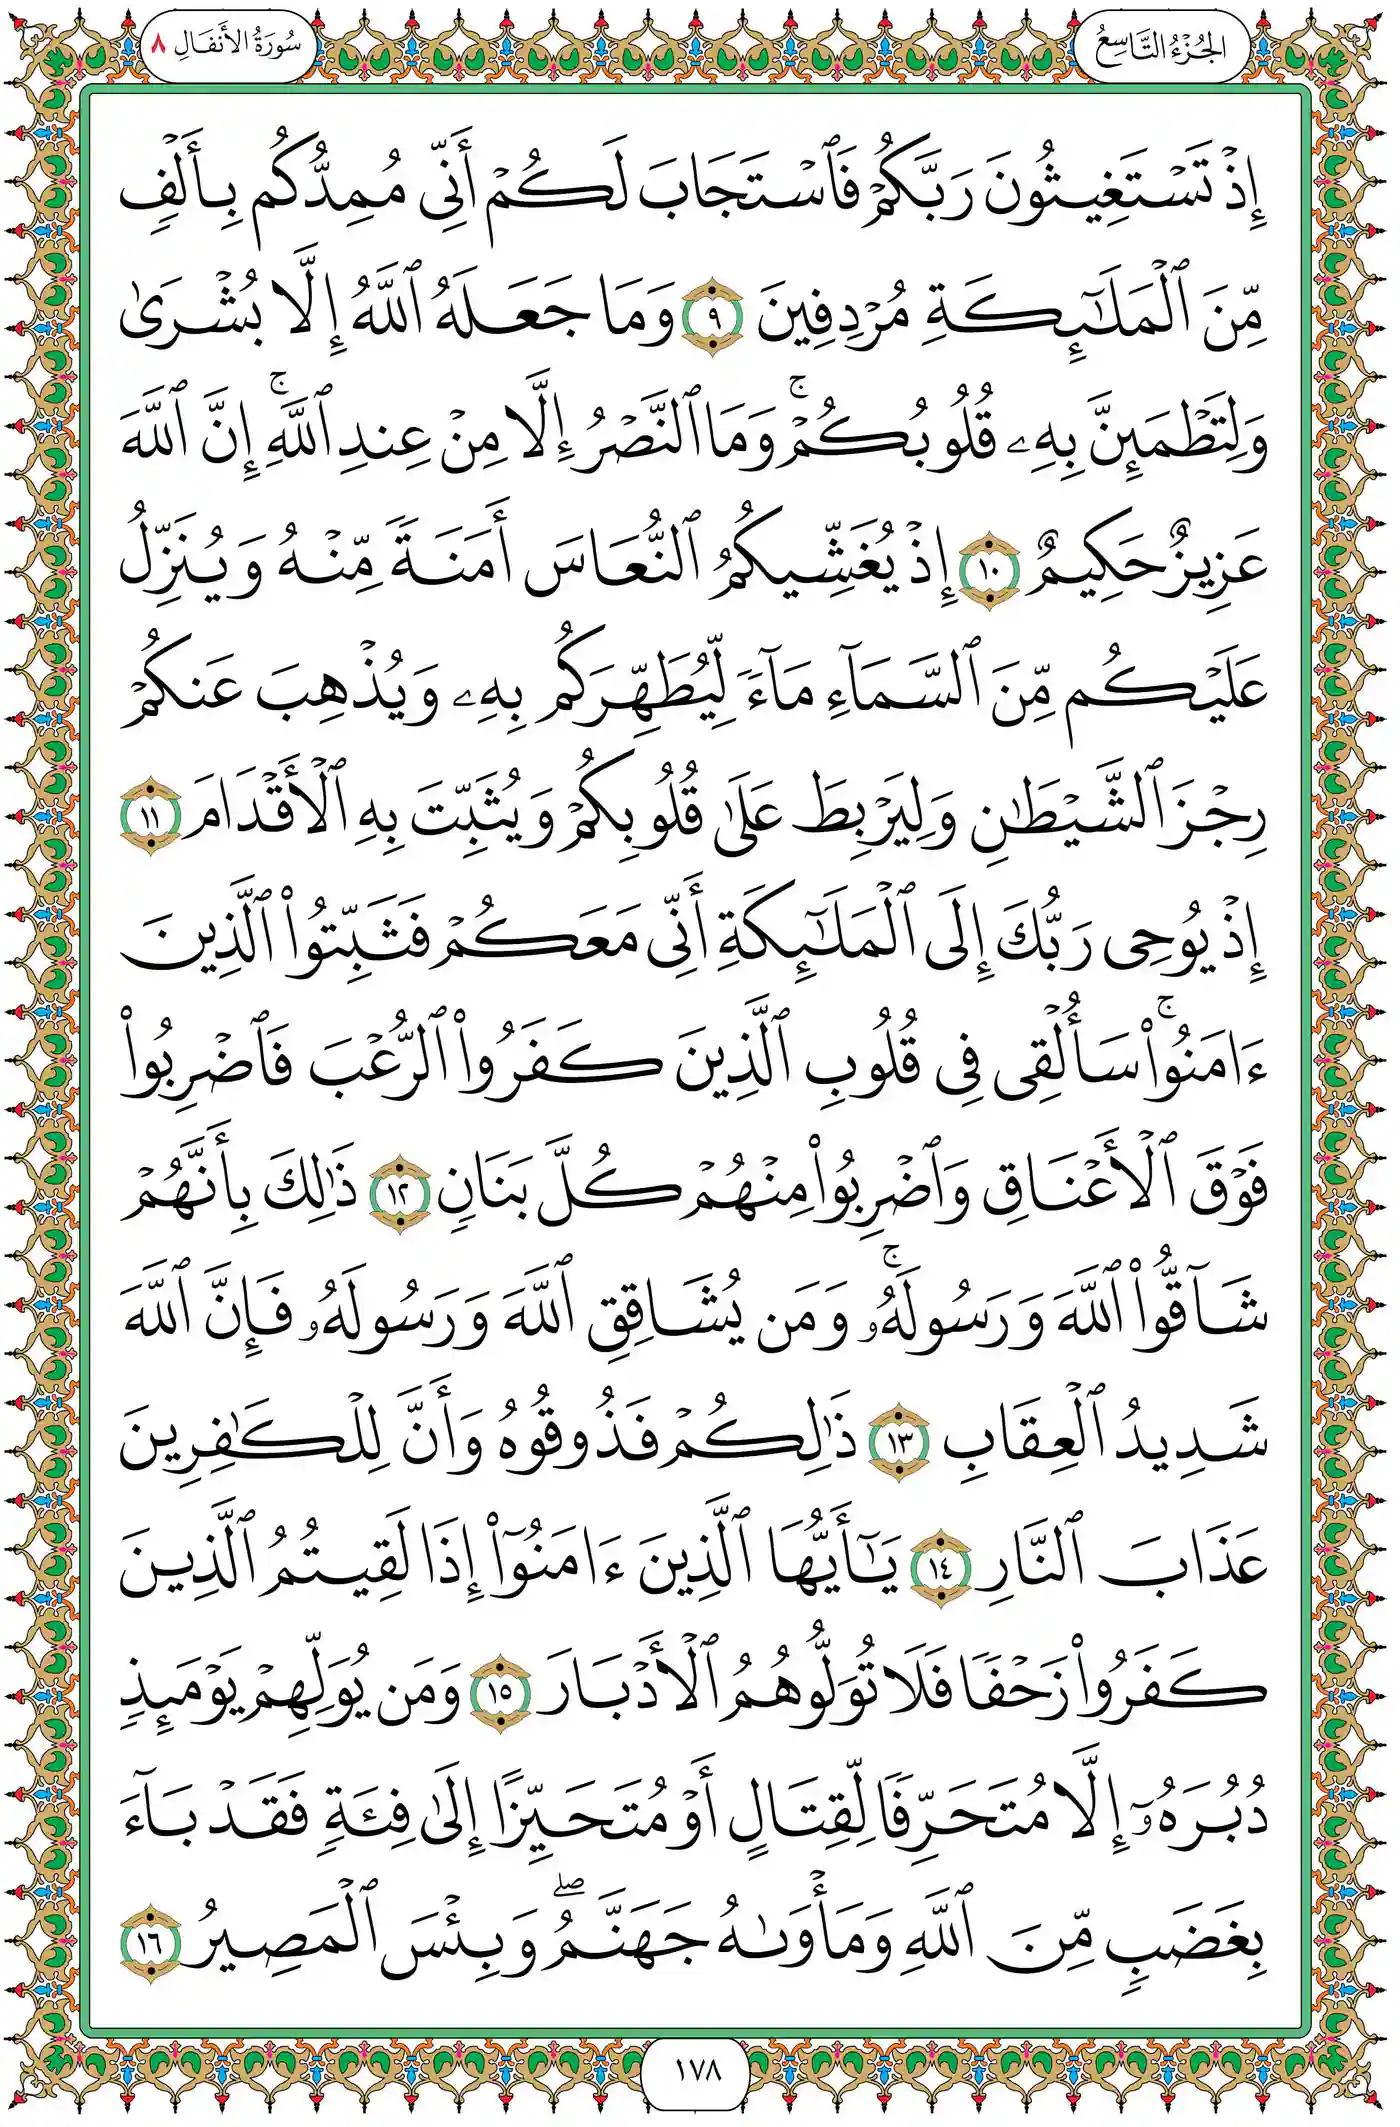 الجُزْءُ التَّاسِعُ
سُورَةُ الأَنفَالِ ٨
إِذْ تَسْتَغِيثُونَ رَبَّكُمْ فَٱسْتَجَابَ لَكُمْ أَنِّى مُمِدُّكُم بِأَلْفٍ
مِّنَ ٱلْمَلَـٰٓئِكَةِ مُرْدِفِينَ ٩ وَمَا جَعَلَهُ ٱللَّهُ إِلَّا بُشْرَىٰ
وَلِتَطْمَئِنَّ بِهِۦ قُلُوبُكُمْ ۚ وَمَا ٱلنَّصْرُ إِلَّا مِنْ عِندِ ٱللَّهِ ۚ إِنَّ ٱللَّهَ
عَزِيزٌ حَكِيمٌ ١٠ إِذْ يُغَشِّيكُمُ ٱلنُّعَاسَ أَمَنَةً مِّنْهُ وَيُنَزِّلُ
عَلَيْكُم مِّنَ ٱلسَّمَآءِ مَآءً لِّيُطَهِّرَكُم بِهِۦ وَيُذْهِبَ عَنكُمْ
رِجْزَ ٱلشَّيْطَـٰنِ وَلِيَرْبِطَ عَلَىٰ قُلُوبِكُمْ وَيُثَبِّتَ بِهِ ٱلْأَقْدَامَ ١١
إِذْ يُوحِى رَبُّكَ إِلَى ٱلْمَلَـٰٓئِكَةِ أَنِّى مَعَكُمْ فَثَبِّتُوا۟ ٱلَّذِينَ
ءَامَنُوا۟ ۚ سَأُلْقِى فِى قُلُوبِ ٱلَّذِينَ كَفَرُوا۟ ٱلرُّعْبَ فَٱضْرِبُوا۟
فَوْقَ ٱلْأَعْنَاقِ وَٱضْرِبُوا۟ مِنْهُمْ كُلَّ بَنَانٍ ١٢ ذَٰلِكَ بِأَنَّهُمْ
شَآقُّوا۟ ٱللَّهَ وَرَسُولَهُۥ ۚ وَمَن يُشَاقِقِ ٱللَّهَ وَرَسُولَهُۥ فَإِنَّ ٱللَّهَ
شَدِيدُ ٱلْعِقَابِ ١٣ ذَٰلِكُمْ فَذُوقُوهُ وَأَنَّ لِلْكَـٰفِرِينَ
عَذَابَ ٱلنَّارِ ١٤ يَـٰٓأَيُّهَا ٱلَّذِينَ ءَامَنُوٓا۟ إِذَا لَقِيتُمُ ٱلَّذِينَ
كَفَرُوا۟ زَحْفًا فَلَا تُوَلُّوهُمُ ٱلْأَدْبَارَ ١٥ وَمَن يُوَلِّهِمْ يَوْمَئِذٍ
دُبُرَهُۥٓ إِلَّا مُتَحَرِّفًا لِّقِتَالٍ أَوْ مُتَحَيِّزًا إِلَىٰ فِئَةٍ فَقَدْ بَآءَ
بِغَضَبٍ مِّنَ ٱللَّهِ وَمَأْوَىٰهُ جَهَنَّمُ ۖ وَبِئْسَ ٱلْمَصِيرُ ١٦
١٧٨